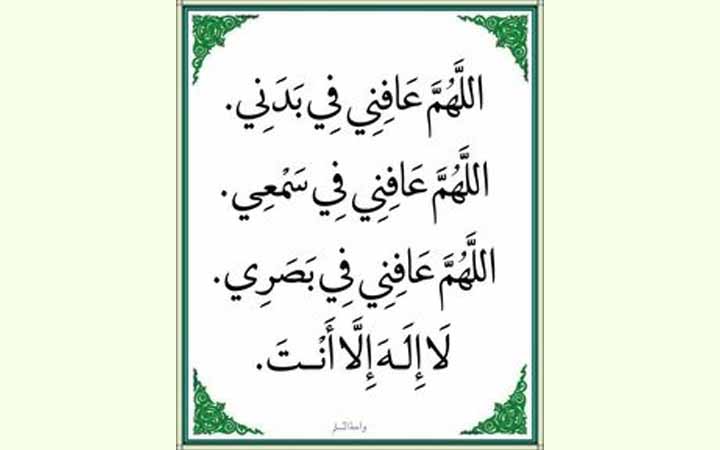 اللَّهُمَّ عَافِنِي فِي بَدَنِي.
اللَّهُمَّ عَافِنِي فِي سَمْعِي.
اللَّهُمَّ عَافِنِي فِي بَصَرِي.
لَا إِلَـهَ إِلَّا أَنْـتَ.